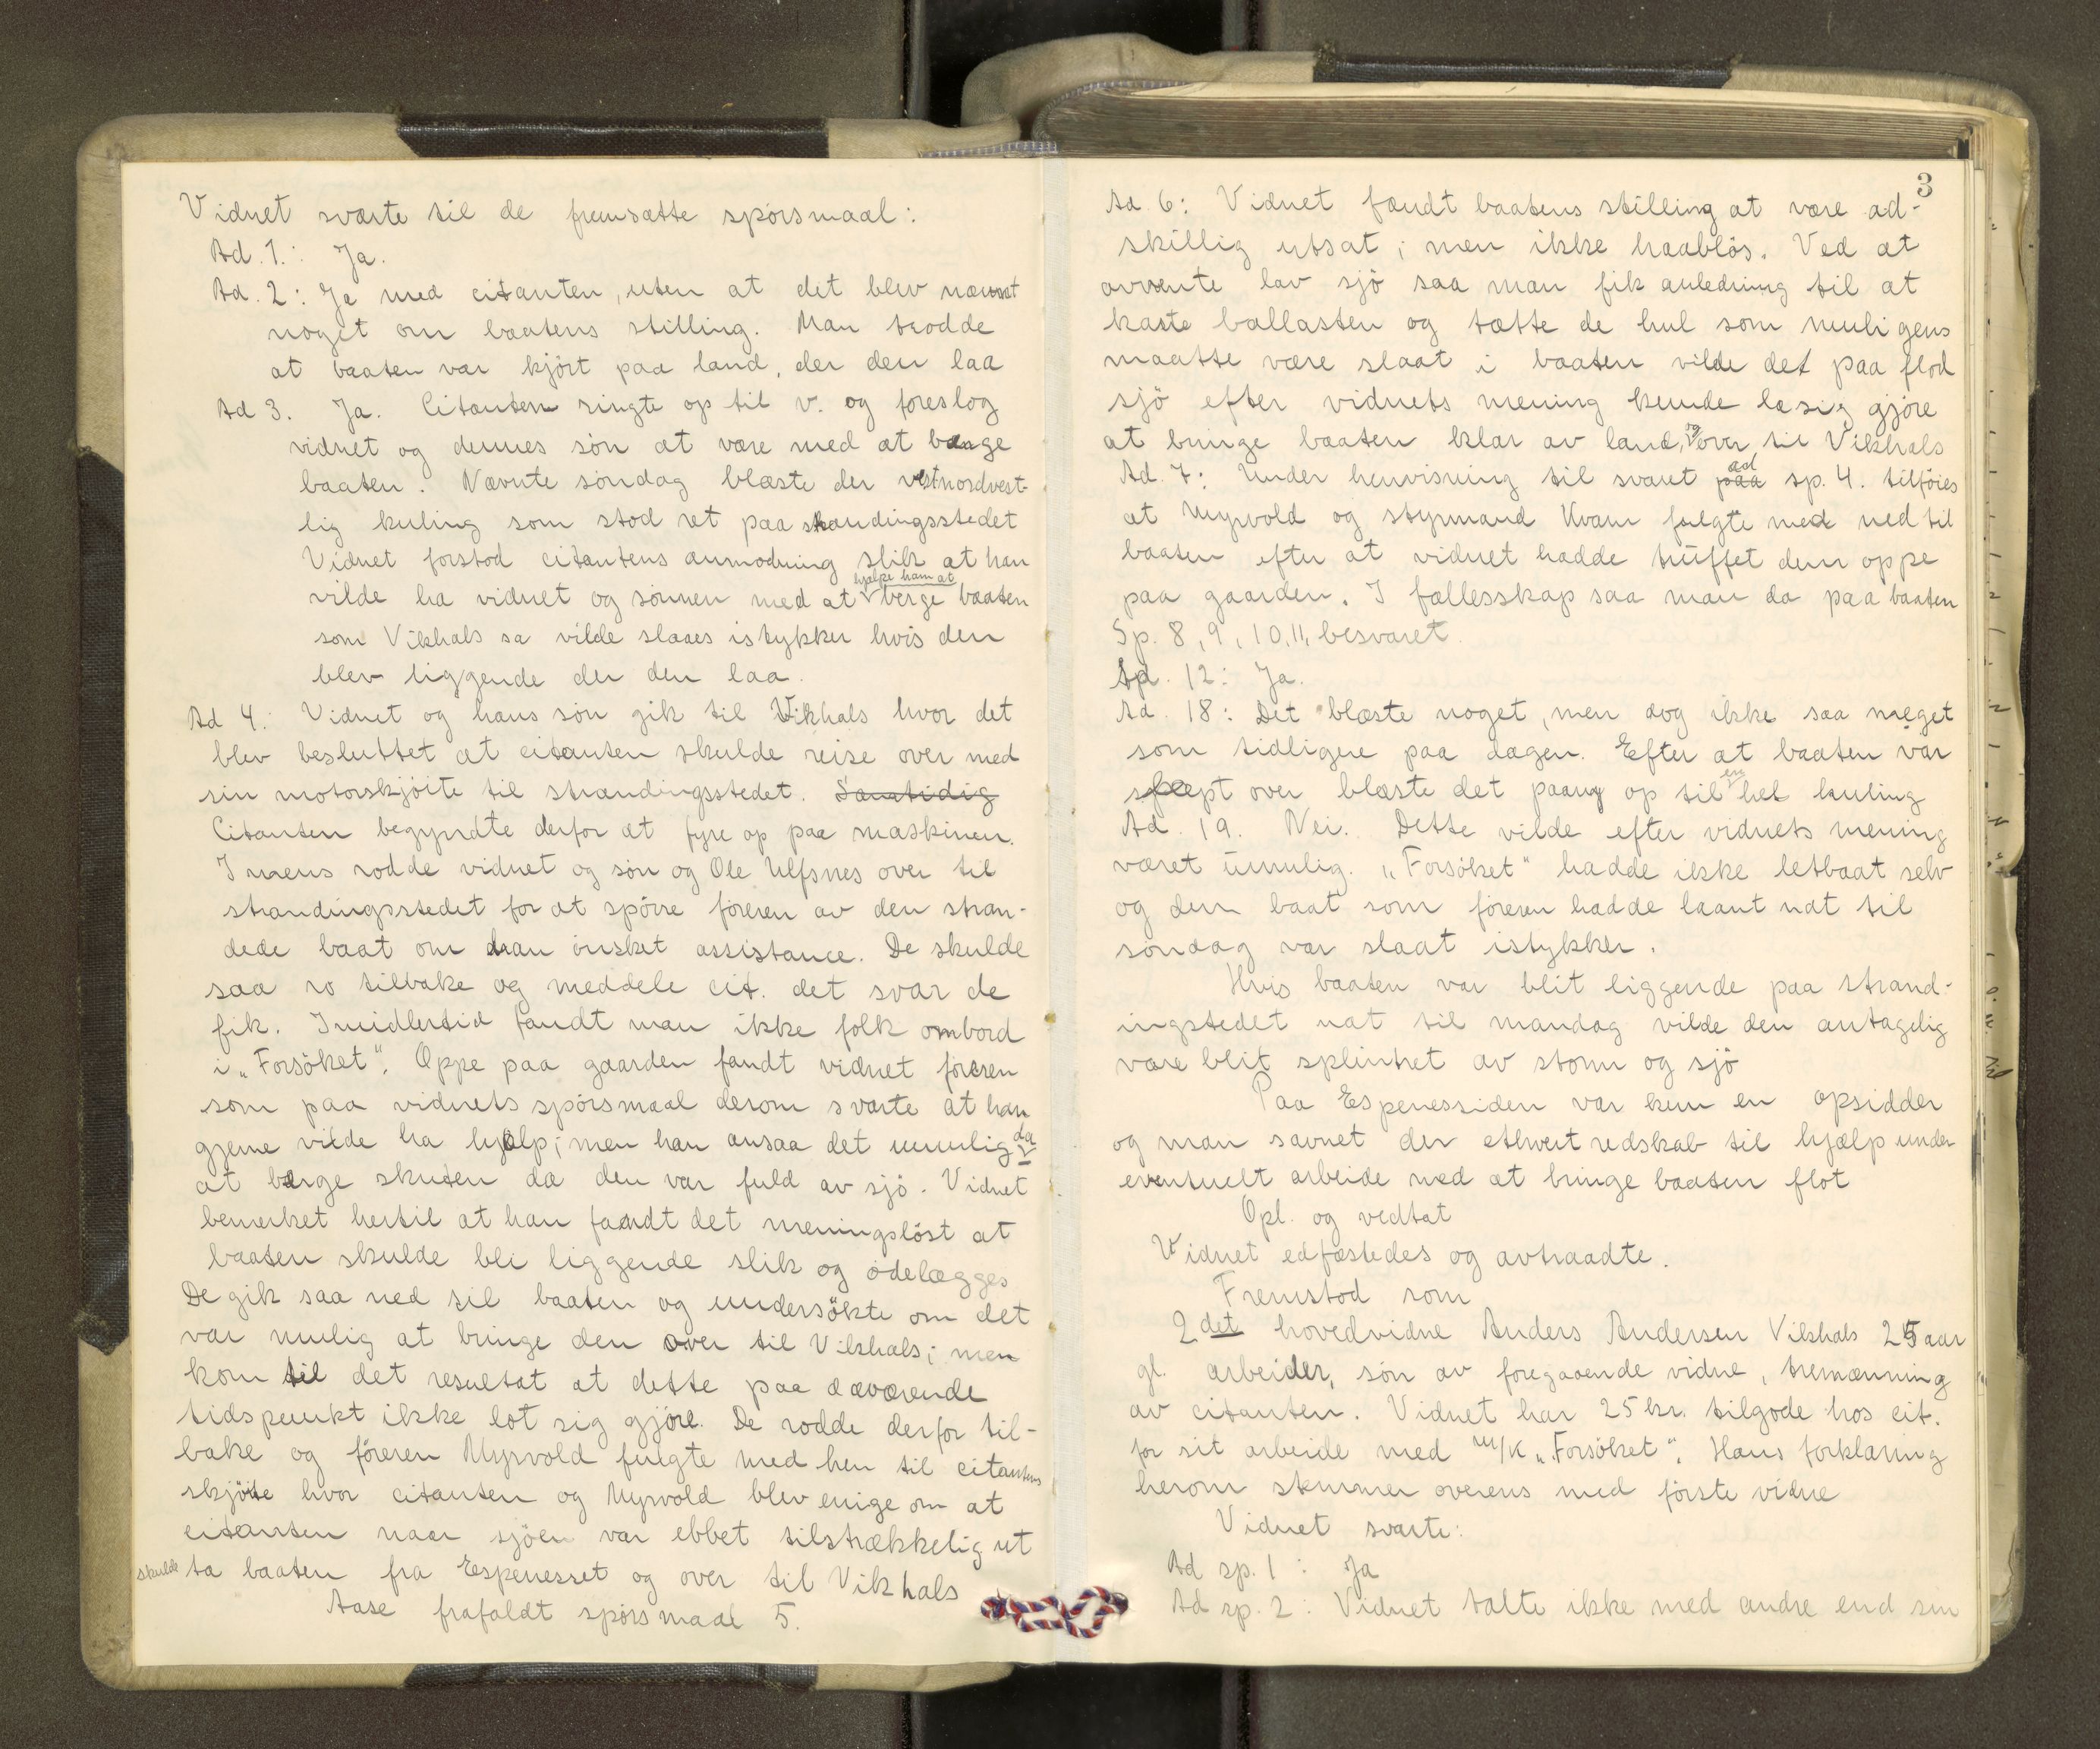 Vidnet svarte til de fremsatte spörsmaal:
Ad. 1.: Ja.
Ad. 2: Ja med citanten, uten at det blev nævnt
noget om baatens stilling. Man trodde
at baaten var kjört paa land, der den laa
Ad 3. Ja. Citanten ringte op til v. og foreslog
vidnet og dennes sön at være med at berge
baaten. Nævnte söndag blæste der vestnordvest-
lig kuling som stod ret paa strandingsstedet
Vidnet forstod citantens anmodning slik at han
vilde ha vidnet og sönnen med at hjælpe ham at berge baaten
som Vikhals sa vilde slaaes istykker hvis den
blev liggende der den laa.
Ad 4.: Vidnet og hans sön gik til Vikhals hvor det
blev besluttet at citanten skulde reise over med
sin motorskjöite til strandingsstedet. Samtidig
Citanten begyndte derfor at fyre op paa maskinen.
Imens rodde vidnet og sön og Ole Ulfsnes over til
strandingsstedet for at spörre föreren av den stran-
dede baat om han önsket assistance. De skulde
saa ro tilbake og meddele cit. det svar de
fik. Imidlertid fandt man ikke folk ombord
i „Forsöket“. Oppe paa gaarden fandt vidnet föreren
som paa vidnets spörsmaal derom svarte at han
gjerne vilde ha hjælp; men han ansaa det umulig da
at berge skuten da den var fuld av sjö. Vidnet
bemerket hertil at han fandt det meningslöst at
baaten skulde bli liggende slik og ödelægges
De gik saa ned til baaten og undersökte om det
var mulig at bringe den over til Vikhals; men
kom til det resultat at dette paa daværende
tidspunkt ikke lot sig gjöre. De rodde derfor til-
bake og föreren Myrvold fulgte med hen til citantens
skjöite hvor citanten og Myrvold blev enige om at
citanten naar sjöen var ebbet tilstrækkelig ut
skulde ta baaten fra Espenesset og over til Vikhals
Aase frafaldt spörsmaal 5.
3
Ad. 6: Vidnet fandt baatens stilling at være ad-
skillig utsat; men ikke haablös. Ved at
avvente lav sjö saa man fik anledning til at
kaste ballasten og tætte de hul som muligens
maatte være slaat i baaten vilde det paa flod
sjö efter vidnets mening kunde la sig gjöre
at bringe baaten klar av land, og over til Vikhals
Ad. 7: Under henvisning til svaret paa ad sp. 4. tilföies
at Myrvold og styrmand Kvam fulgte med ned til
baaten efter at vidnet hadde truffet dem oppe
paa gaarden. I fællesskap saa man da paa baaten
Sp. 8, 9, 10, 11, besvaret.
Ad. 12: Ja.
Ad. 18: Det blæste noget, men dog ikke saa meget
som tidligere paa dagen. Efter at baaten var
slæpt over blæste det paany op til en hel kuling
Ad. 19. Nei. Dette vilde efter vidnets mening
været umulig. „Forsöket“ hadde ikke letbaat selv
og den baat som föreren hadde laant nat til
söndag var slaat istykker.
Hvis baaten var blit liggende paa strand-
ingstedet nat til mandag vilde den antagelig
være blit splintret av storm og sjö
Paa Espenessiden var kun en opsidder
og man savnet der ethvert redskab til hjælp under
eventuelt arbeide med at bringe baaten flot
Opl. og vedtat
Vidnet edfæstedes og avtraadte.
Fremstod som
2det hovedvidne Anders Andersen Vikhals 25 aar
gl. arbeider, sön av foregaaende vidne, tremænning
av citanten. Vidnet har 25 kr. tilgode hos cit.
for sit arbeide med M/K „Forsöket“. Hans forklaring
herom stemmer overens med förste vidne
Vidnet svarte:
Ad sp. 1: Ja
Ad sp. 2: Vidnet talte ikke med andre end sin